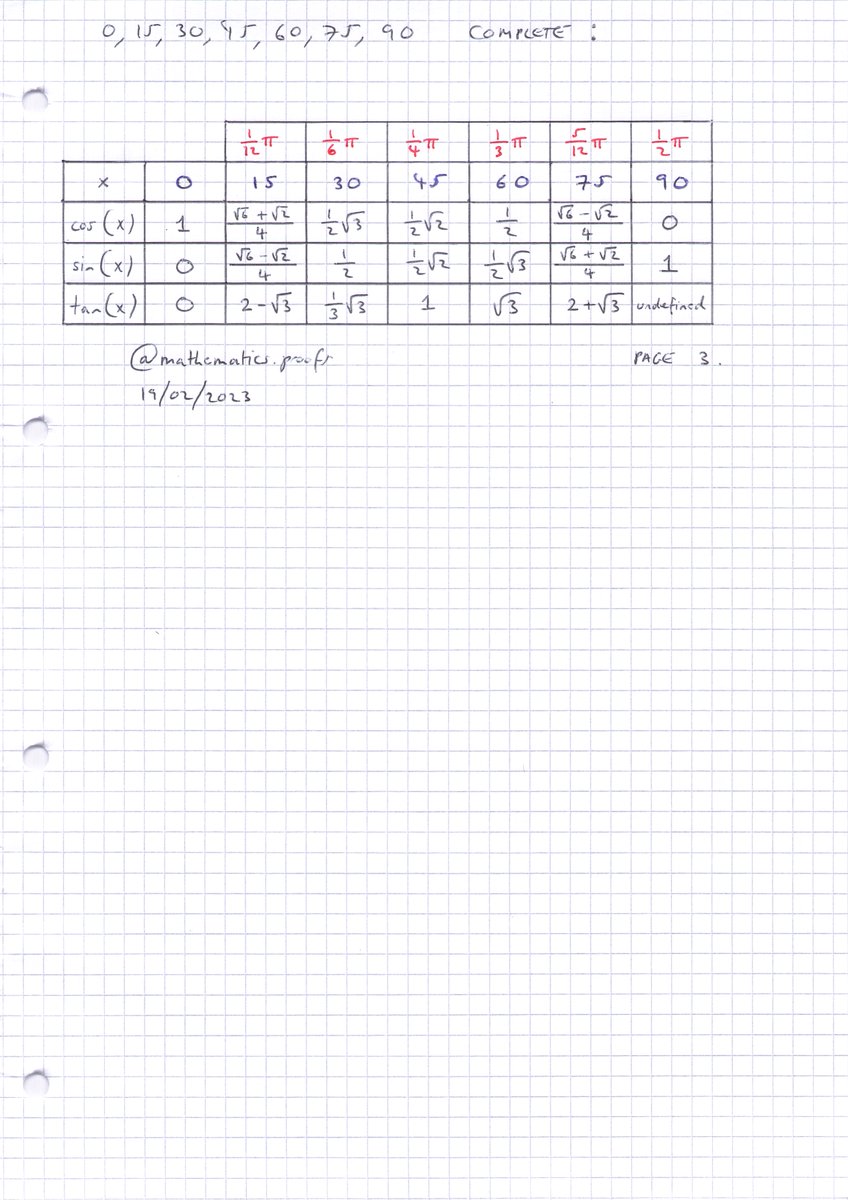 0, 15, 30, 45, 60, 75, 90 COMPLETE :
1/12 π 1/6 π 1/4 π 1/3 π 5/12 π 1/2 π
x 0 15 30 45 60 75 90
cos(x) 1 (√6 + √2)/4 1/2 √3 1/2 √2 1/2 (√6 - √2)/4 0
sin(x) 0 (√6 - √2)/4 1/2 1/2 √2 1/2 √3 (√6 + √2)/4 1
tan(x) 0 2 - √3 1/3 √3 1 √3 2 + √3 undefined
@mathematics.proofs PAGE 3.
19/02/2023